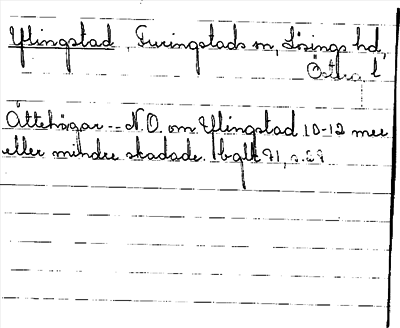 Ylingstad, Furingstads sn, Lösings hd,
Östra l
Ättehögar -- N.O. om Ylingstad 10-12 mer
eller mindre skadade. Ibglt 71, s.